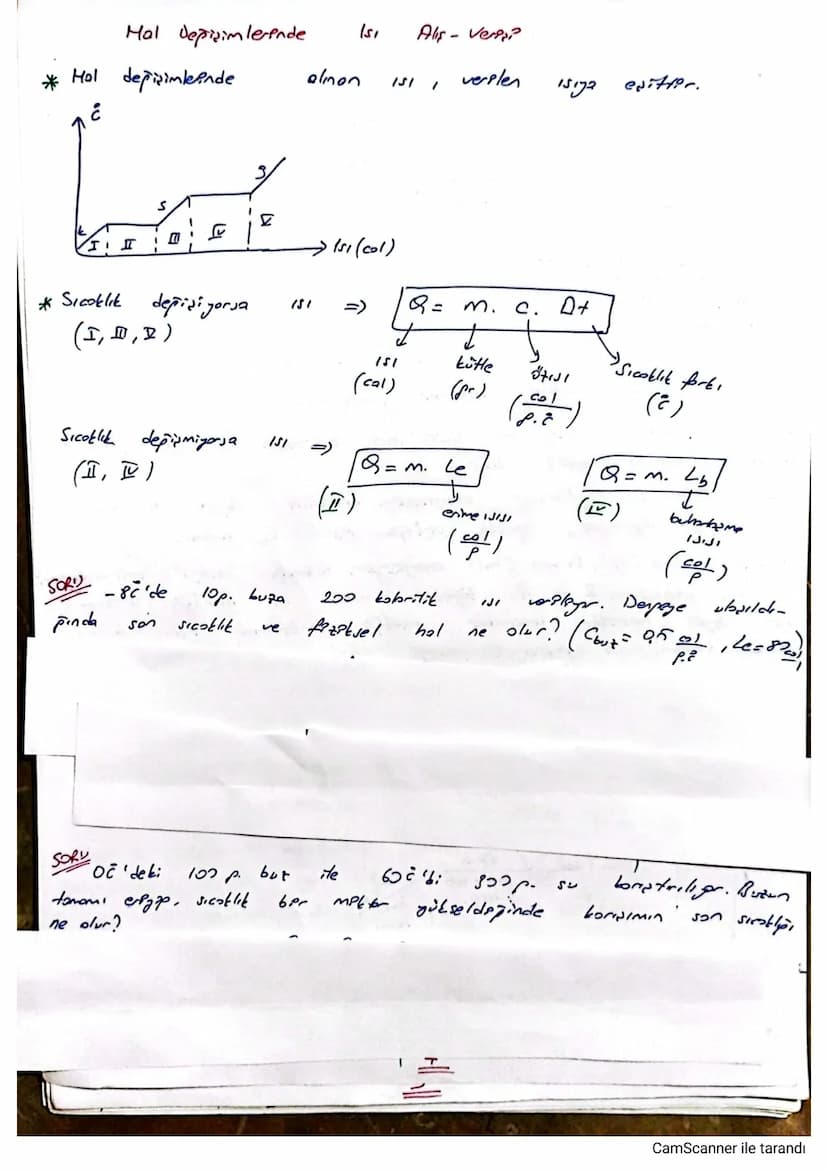 Hal Değişimlerinde Isı Alış-Verişi
* Hal değişimlerinde alınan ısı, verilen ısıya eşittir.
°C
k
s
g
I II III IV V
Isı (cal)
* Sıcaklık değişiyorsa ısı => Q = m. c. Δt
(I, III, V)
ısı (cal)
kütle (gr)
özısı (cal/g.°C)
Sıcaklık farkı (°C)
Sıcaklık değişmiyorsa ısı => Q = m. Le Q = m. Lb
(II, IV) (II) (IV)
erime ısısı (cal/g)
buharlaşma ısısı (cal/g)
SORU -8°C'de 10g. buza 200 kalorilik ısı veriliyor. Dengeye ulaşıldı-
ğında son sıcaklık ve fiziksel hal ne olur? (Cbuz = 0,5 cal/g.°C, Le = 80 cal/g)
SORU
0°C'deki 100 g. buz ile 60°C'ki 300 g. su karıştırılıyor. Buzun
tamamı eriyip, sıcaklık bir miktar yükseldiğinde karışımın son sıcaklığı
ne olur?
CamScanner ile tarandı